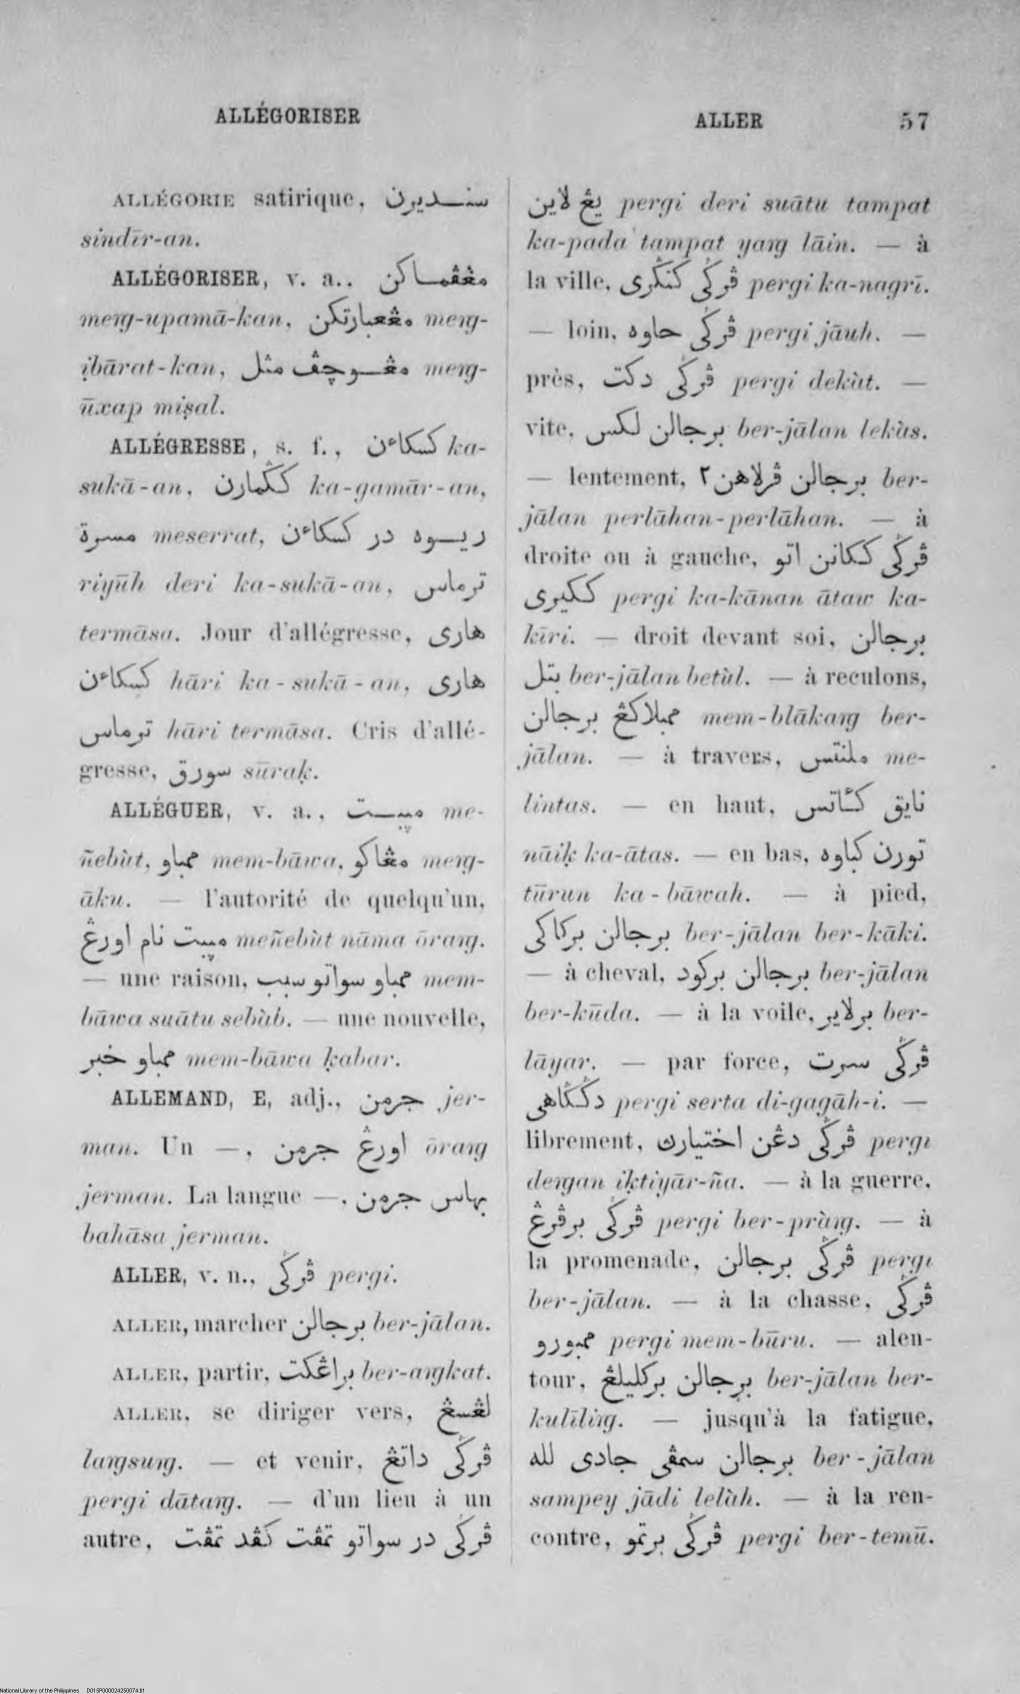 ALLÉGORISER
ALLER 57
ALLÉGORIE satirique, سنديرن
sindīr-an.
ALLÉGORISER, v. a., مڠڤماكن
meŋg-upamā-kan, مڠعبارتكن meŋg-
ịbārat-kan, مڠوچڤ مثل meŋg-
ūxap miṣal.
ALLÉGRESSE, s. f., كسكاءن ka-
sukā-an, كݢمارن ka-gamār-an,
مسرة meserrat, ريوه در كسكاءن
riyūh deri ka-sukā-an, ترماس
termāsa. Jour d'allégresse, هارى
كسكاءن hāri ka-sukā-an, هارى
ترماس hāri termāsa. Cris d'allé-
gresse, سورق sūraḳ.
ALLÉGUER, v. a., me-
ñebùt, ممباو mem-bāwa, مڠاكو meŋg-
āku. — l'autorité de quelqu'un,
نام اورڠ meñebùt nāma ōraŋg.
— une raison, ممباو سواتو سبب mem-
bāwa suātu sebàb. — une nouvelle,
ممباو خبر mem-bāwa ḳabar.
ALLEMAND, E, adj., جرمن jer-
man. Un —, اورڠ جرمن ōraŋg
jerman. La langue —, بهاس جرمن
bahāsa jerman.
ALLER, v. n., ڤرݢى pergi.
ALLER, marcher برجالن ber-jālan.
ALLER, partir, براڠكت ber-aŋgkat.
ALLER, se diriger vers, لڠسڠ
laŋgsuŋg. — et venir, ڤرݢى داتڠ
pergi dātaŋg. — d'un lieu à un
autre, ڤرݢى در سواتو تمڤت كڤد تمڤت
يڠ لاين pergi deri suātu tampat
ka-pada tampat yaŋg lāin. — à
la ville, ڤرݢى كنݢرى pergi ka-nagrī.
— loin, ڤرݢى جاوه pergi jāuh. —
près, ڤرݢى دكت pergi dekàt. —
vite, برجالن لكس ber-jālan lekàs.
— lentement, برجالن ڤرلاهن٢ ber-
jālan perlāhan-perlāhan. — à
droite ou à gauche, ڤرݢى ككانن اتو
ككيرى pergi ka-kānan ātaw ka-
kīri. — droit devant soi, برجالن
بتل ber-jālan betùl. — à reculons,
ممبلاكڠ برجالن mem-blākaŋg ber-
jālan. — à travers, ملنتس me-
lintas. — en haut, نايق كأتس
nāiḳ ka-ātas. — en bas, تورن كباوه
tūrun ka-bāwah. — à pied,
برجالن بركاكى ber-jālan ber-kāki.
— à cheval, برجالن بركود ber-jālan
ber-kūda. — à la voile, برلاير ber-
lāyar. — par force, ڤرݢى سرت
دݢݢاهى pergi serta di-gagāh-i. —
librement, ڤرݢى دڠن اختيارث pergi
deŋgan iḳtiyār-ña. — à la guerre,
ڤرݢى برڤرڠ pergi ber-pràŋg. — à
la promenade, ڤرݢى برجالن pergi
ber-jālan. — à la chasse, ڤرݢى
ممبورو pergi mem-būru. — alen-
tour, برجالن بركليلڠ ber-jālan ber-
kulīlìŋg. — jusqu'à la fatigue,
برجالن سمڤى جادى لله ber-jālan
sampey jādi lelàh. — à la ren-
contre, ڤرݢى برتمو pergi ber-temū.
National Library of the Philippines